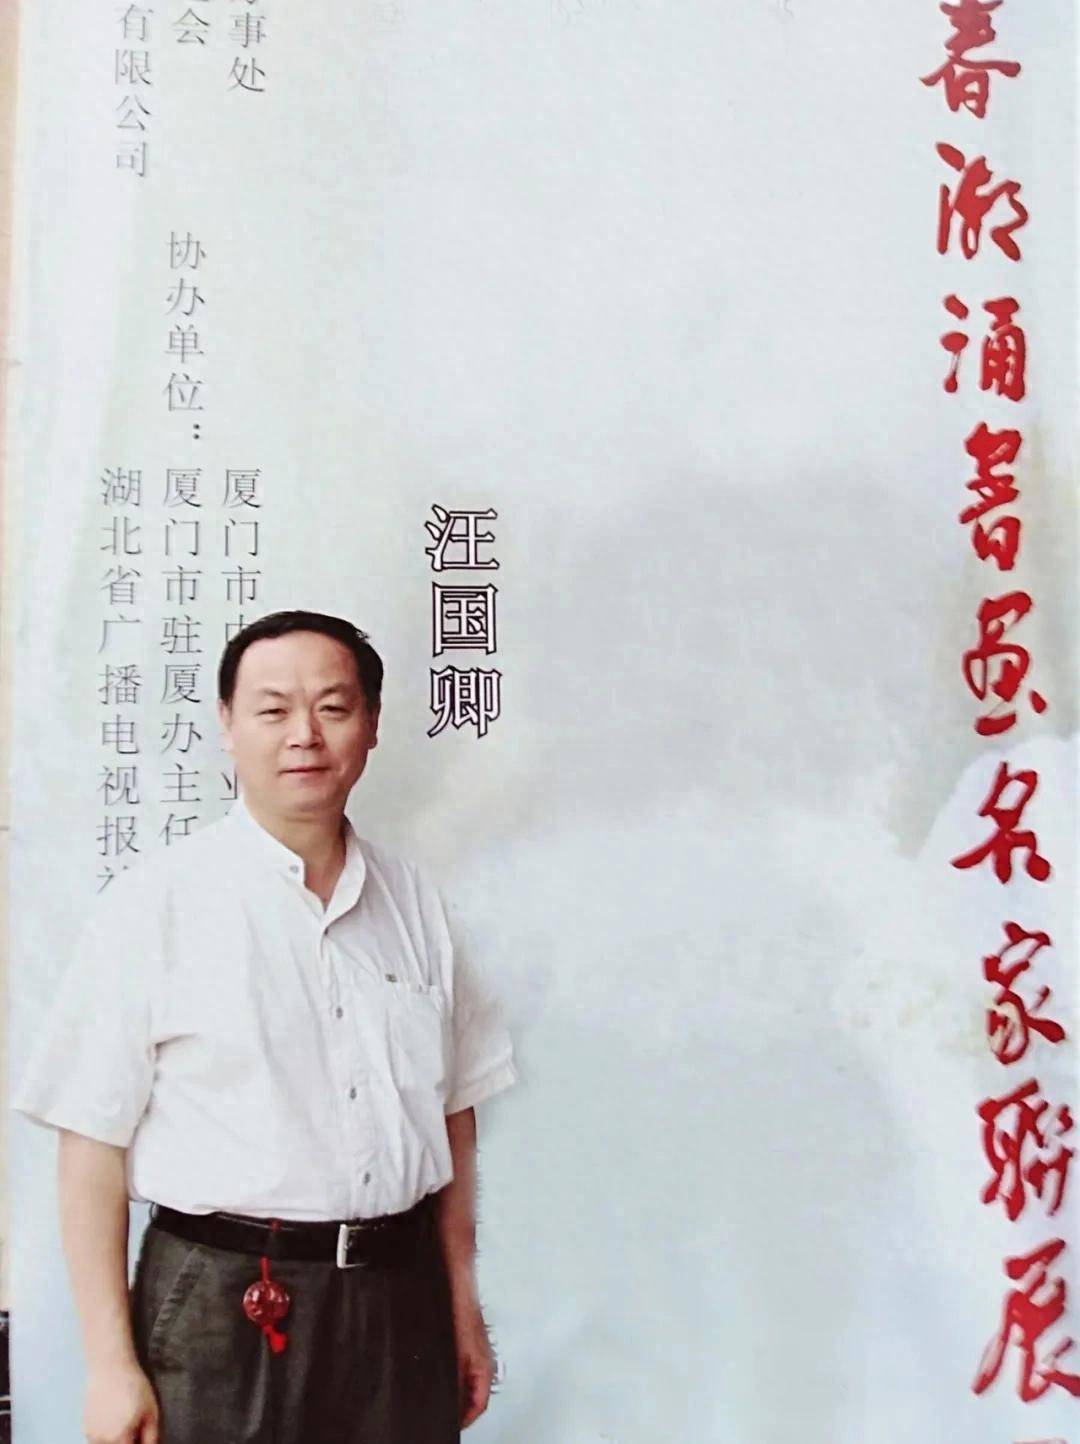 春潮涌书画名家联展
汪国卿
事处
会
有限公司
协办单位：
厦门市
厦门市驻厦办主任
湖北省广播电视报